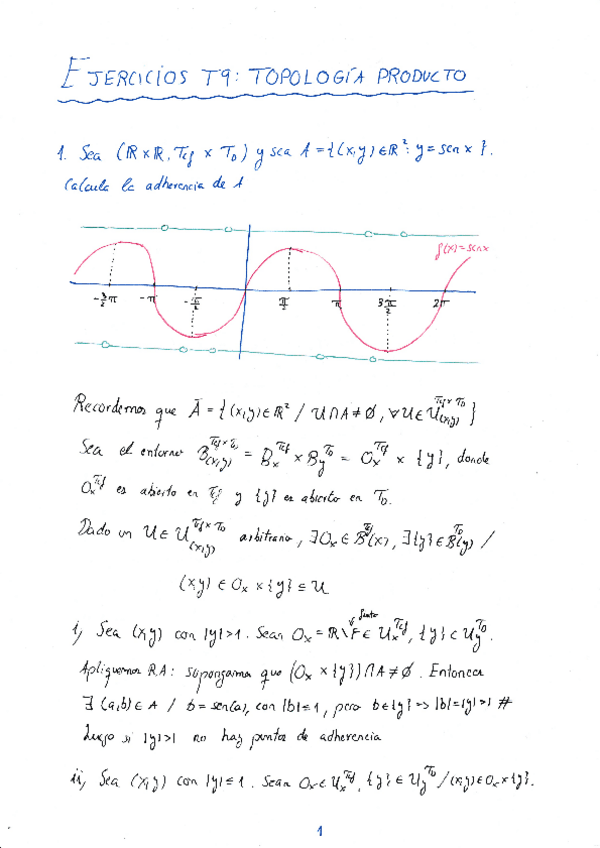 EJERCICIOS T9: TOPOLOGÍA PRODUCTO
1. Sea (ℝxℝ, T_cf x T_D) y sea A = {(x,y) ∈ ℝ² : y = sen x }.
Calcula la adherencia de A
f(x) = sen x
-3/2 π -π -π/2 π/2 π 3π/2 2π
Recordemos que Ā = {(x,y) ∈ ℝ² / U ∩ A ≠ ∅, ∀ U ∈ U_(x,y)^(T_cf x T_D) }
Sea el entorno B_(x,y)^(T_cf x T_D) = B_x^(T_cf) x B_y^(T_D) = O_x^(T_cf) x {y}, donde
O_x^(T_cf) es abierto en T_cf y {y} es abierto en T_D.
Dado un U ∈ U_(x,y)^(T_cf x T_D) arbitrario, ∃ O_x ∈ B^(T_cf)(x), ∃ {y} ∈ B^(T_D)(y) /
(x,y) ∈ O_x x {y} ⊆ U
i, Sea (x,y) con |y|>1. Sean O_x = ℝ\F ∈ U_x^(T_cf), {y} ⊂ U_y^(T_D).
finito
Apliquemos RA: supongamos que (O_x x {y}) ∩ A ≠ ∅. Entonces
∃ (a,b) ∈ A / b = sen(a), con |b| ≤ 1, pero b ∈ {y} => |b| = |y| > 1 #
Luego si |y|>1 no hay puntos de adherencia
ii, Sea (x,y) con |y| ≤ 1. Sean O_x ∈ U_x^(T_cf), {y} ∈ U_y^(T_D) / (x,y) ∈ O_x x {y}.
1